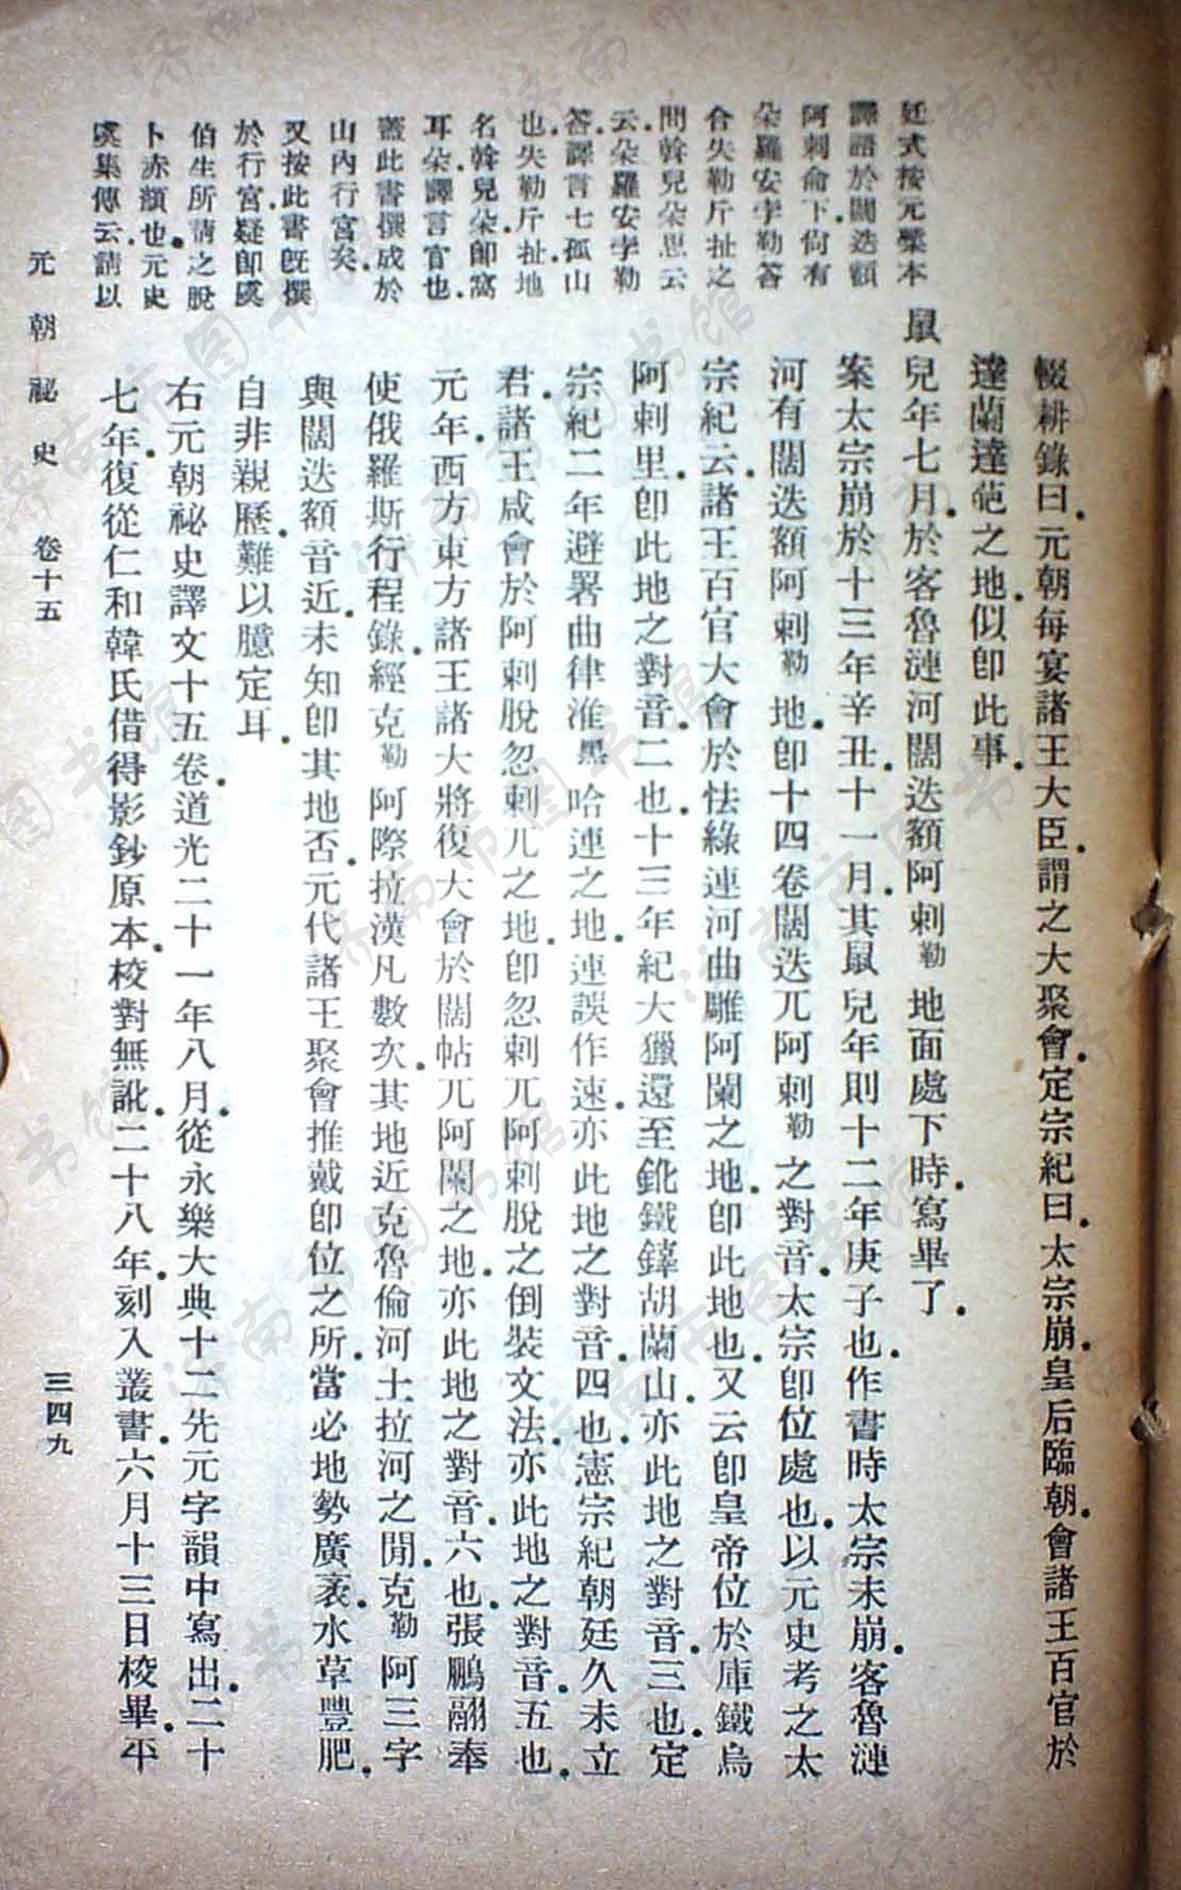 廷式按元槧本
譯語於闊迭額
阿剌侖下尙有
朵羅安孛勒荅
合失勒斤扯之
間斡兒朵思云
云朵羅安孛勒
荅譯言七孤山
也失勒斤扯地
名斡兒朵卽窩
耳朵譯言官也
蓋此書撰成於
山內行宮矣
又按此書旣撰
於行宮疑卽虞
伯生所請之脫
卜赤顏也元史
虞集傳云請以
輟耕錄曰元朝每宴諸王大臣謂之大聚會定宗紀曰太宗崩皇后臨朝會諸王百官於
達蘭達葩之地似卽此事
鼠兒年七月於客魯漣河闊迭額阿剌勒地面處下時寫畢了
案太宗崩於十三年辛丑十一月其鼠兒年則十二年庚子也作書時太宗未崩客魯漣
河有闊迭額阿剌勒地卽十四卷闊迭兀阿剌勒之對音太宗卽位處也以元史考之太
宗紀云諸王百官大會於怯綠連河曲雕阿闌之地卽此地也又云卽皇帝位於庫鐵烏
阿剌里卽此地之對音二也十三年紀大獵還至鈋鐵𨬕胡蘭山亦此地之對音三也定
宗紀二年避暑曲律淮黑哈連之地連誤作速亦此地之對音四也憲宗紀朝廷久未立
君諸王咸會於阿剌脫忽剌兀之地卽忽剌兀阿剌脫之倒裝文法亦此地之對音五也
元年西方東方諸王諸大將復大會於闊帖兀阿闌之地亦此地之對音六也張鵬翮奉
使俄羅斯行程錄經克勒阿際拉漢凡數次其地近克魯倫河土拉河之閒克勒阿三字
與闊迭額音近未知卽其地否元代諸王聚會推戴卽位之所當必地勢廣袤水草豐肥
自非親歷難以臆定耳
右元朝祕史譯文十五卷道光二十一年八月從永樂大典十二先元字韻中寫出二十
七年復從仁和韓氏借得影鈔原本校對無訛二十八年刻入叢書六月十三日校畢平
元朝祕史 卷十五 三四九